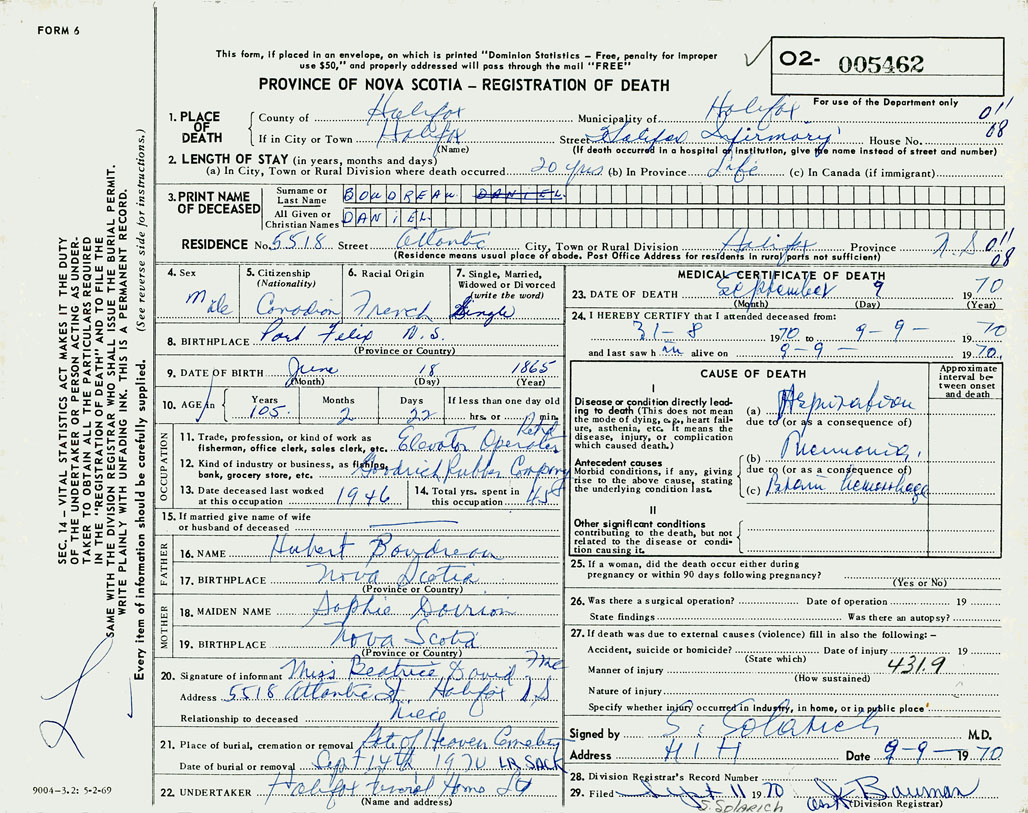 FORM 6
This form, if placed in an envelope, on which is printed "Dominion Statistics - Free, penalty for improper
use $50," and properly addressed will pass through the mail "FREE"
02- 005462
PROVINCE OF NOVA SCOTIA – REGISTRATION OF DEATH
For use of the Department only
1. PLACE OF DEATH
County of Halifax Municipality of Halifax 011
If in City or Town Halifax Street Halifax Infirmary House No. 08
(Name) (If death occurred in a hospital or institution, give the name instead of street and number)
2. LENGTH OF STAY (in years, months and days)
(a) In City, Town or Rural Division where death occurred 20 yrs (b) In Province Life (c) In Canada (if immigrant)
3. PRINT NAME OF DECEASED
Surname or Last Name BOUDREAU DANIEL
All Given or Christian Names DANIEL
RESIDENCE No. 5518 Street Atlantic City, Town or Rural Division Halifax Province N.S 011
(Residence means usual place of abode. Post Office Address for residents in rural parts not sufficient) 08
4. Sex Male
5. Citizenship (Nationality) Canadian
6. Racial Origin French
7. Single, Married, Widowed or Divorced (write the word) Single
8. BIRTHPLACE Port Felix N.S.
(Province or Country)
9. DATE OF BIRTH June 18 1865
(Month) (Day) (Year)
10. AGE in Years Months Days If less than one day old
105 2 22 hrs. or min.
OCCUPATION
11. Trade, profession, or kind of work as fisherman, office clerk, sales clerk, etc. Elevator Operator Retd
12. Kind of industry or business, as fishing, bank, grocery store, etc. Goodrich Rubber Company
13. Date deceased last worked at this occupation 1946
14. Total yrs. spent in this occupation 45
15. If married give name of wife or husband of deceased
FATHER
16. NAME Hubert Boudreau
17. BIRTHPLACE Nova Scotia
(Province or Country)
MOTHER
18. MAIDEN NAME Sophie
19. BIRTHPLACE Nova Scotia
(Province or Country)
20. Signature of informant Miss Beatrice David
Address 5518 Atlantic St. Halifax N.S
Relationship to deceased Niece
21. Place of burial, cremation or removal Gate of Heaven Cemetery
Date of burial or removal Sept 14th 1970 LR. SACK
22. UNDERTAKER Halifax Funeral Home Ltd
(Name and address)
MEDICAL CERTIFICATE OF DEATH
23. DATE OF DEATH September 9 1970
(Month) (Day) (Year)
24. I HEREBY CERTIFY that I attended deceased from:
31-8 1970 9-9- 70
and last saw him alive on 9-9- 1970
CAUSE OF DEATH
Approximate interval between onset and death
I
Disease or condition directly leading to death (This does not mean the mode of dying, e.g., heart failure, asthenia, etc. It means the disease, injury, or complication which caused death.)
(a) Aspiration
due to (or as a consequence of)
(b) Pneumonia,
Antecedent causes
Morbid conditions, if any, giving rise to the above cause, stating the underlying condition last.
due to (or as a consequence of)
(c) Brain hemorrhage
II
Other significant conditions
contributing to the death, but not related to the disease or condition causing it.
25. If a woman, did the death occur either during
pregnancy or within 90 days following pregnancy?
(Yes or No)
26. Was there a surgical operation? Date of operation 19
State findings Was there an autopsy?
27. If death was due to external causes (violence) fill in also the following: –
Accident, suicide or homicide? Date of injury 19
(State which) 431.9
Manner of injury
(How sustained)
Nature of injury
Specify whether injury occurred in industry, in home, or in public place
Signed by S. Solarich M.D.
Address H I H Date 9-9- 1970
28. Division Registrar's Record Number
29. Filed Sept 11 1970 Bauman
S. SOLARICH (Division Registrar)
SEC. 14 – VITAL STATISTICS ACT MAKES IT THE DUTY
OF THE UNDERTAKER OR PERSON ACTING AS UNDER-
TAKER TO OBTAIN ALL THE PARTICULARS REQUIRED
IN THE "REGISTRATION OF DEATH" AND TO FILE THE
SAME WITH THE DIVISION REGISTRAR WHO SHALL ISSUE THE BURIAL PERMIT.
WRITE PLAINLY WITH UNFADING INK. THIS IS A PERMANENT RECORD.
Every item of information should be carefully supplied. (See reverse side for instructions.)
9004-3.2: 5-2-69